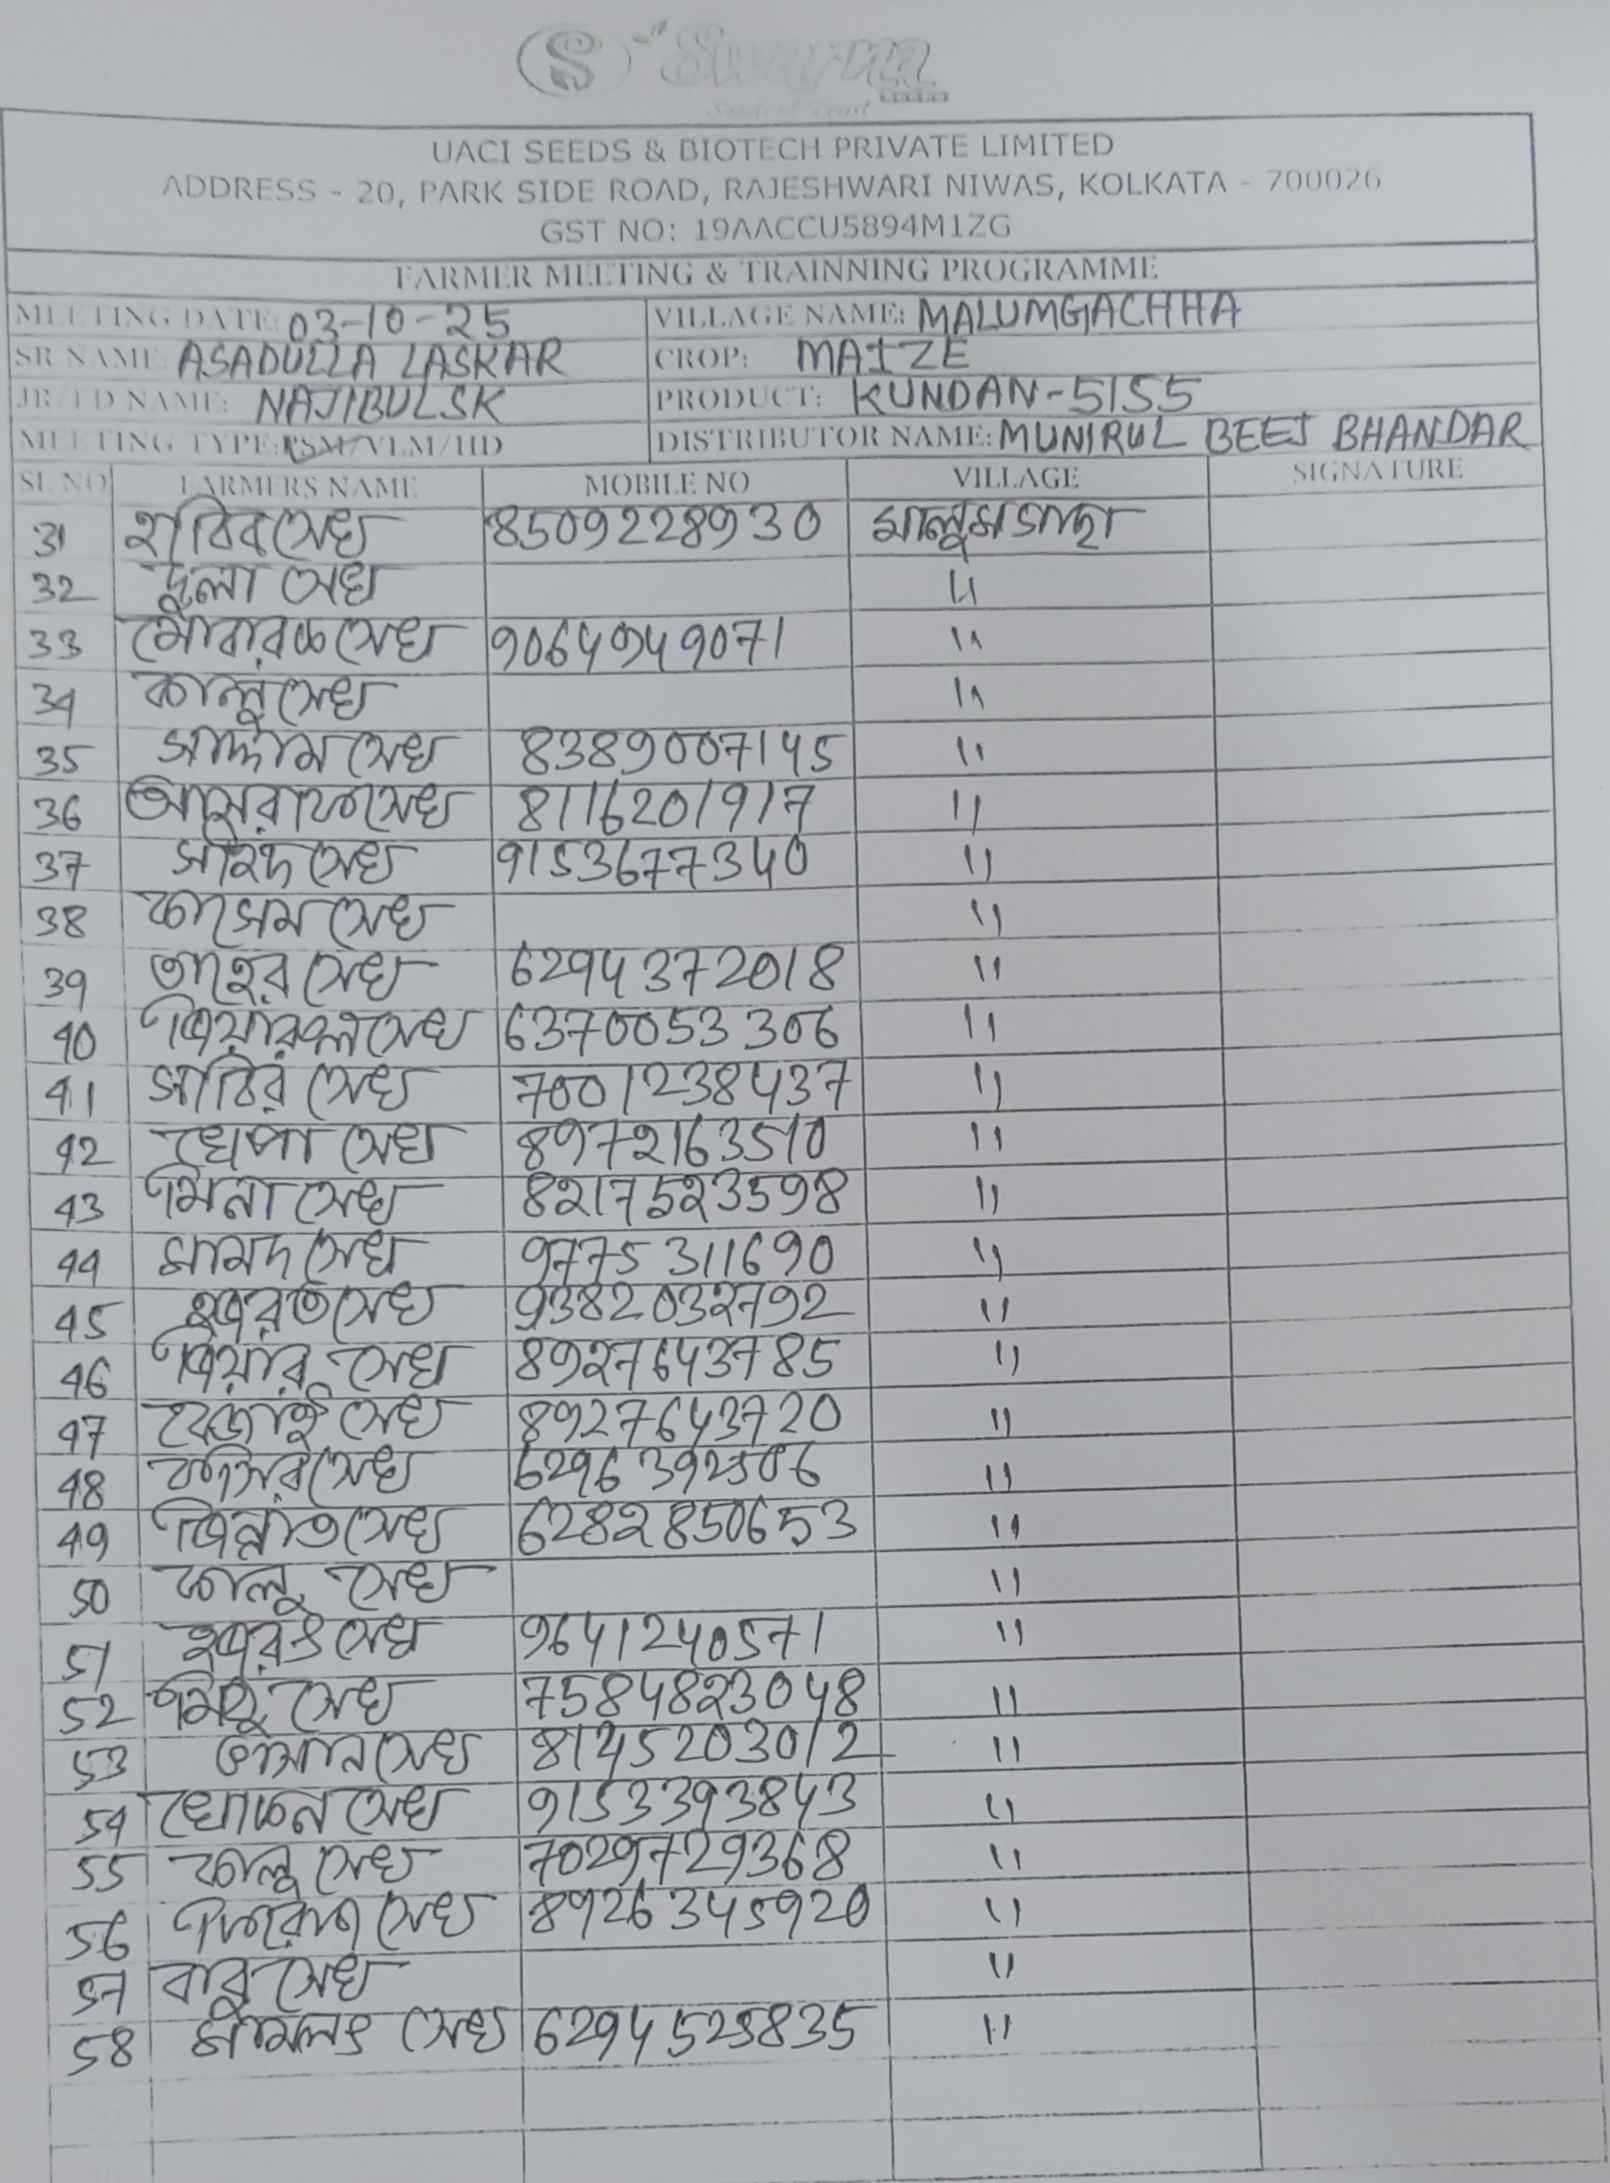 S Swarna
SEEDS
UACI SEEDS & BIOTECH PRIVATE LIMITED
ADDRESS - 20, PARK SIDE ROAD, RAJESHWARI NIWAS, KOLKATA - 700026
GST NO: 19AACCU5894M1ZG
FARMER MEETING & TRAINNING PROGRAMME
MEETING DATE: 03-10-25 VILLAGE NAME: MALUMGACHHA
SR NAME: ASADULLA LASKAR CROP: MAIZE
JR/TD NAME: NAJIBUL SK PRODUCT: KUNDAN-5155
MEETING TYPE: PSM/VLM/HD DISTRIBUTOR NAME: MUNIRUL BEEJ BHANDAR
SL NO FARMERS NAME MOBILE NO VILLAGE SIGNATURE
31 হাবিব সেখ 8509228930 মালুমগাছা
32 দুলা সেখ 11
33 মোবারক সেখ 9064949071 11
34 কালু সেখ 11
35 সাদ্দাম সেখ 8389007145 11
36 আসরাফ সেখ 8116201917 11
37 সহিদ সেখ 9153677340 11
38 কাসেম সেখ 11
39 তাহের সেখ 6294372018 11
40 জিয়ারুল সেখ 6370053306 11
41 সাবির সেখ 7001238437 11
42 খেপা সেখ 8972163510 11
43 মিনা সেখ 8217523598 11
44 সামাদ সেখ 9775311690 11
45 হজরত সেখ 9382032792 11
46 জিয়ারু সেখ 8927643785 11
47 সেখ 8927643720 11
48 সেখ 6296392506 11
49 জিন্নাত সেখ 6282850653 11
50 কালু সেখ 11
51 হজরত সেখ 9641240571 11
52 সেখ 7584823048 11
53 সেখ 8145203012 11
54 খোকন সেখ 9153393843 11
55 কালু সেখ 7029729368 11
56 ফিরোজ সেখ 8926345920 11
57 বাবু সেখ 11
58 সেখ 6294525835 11